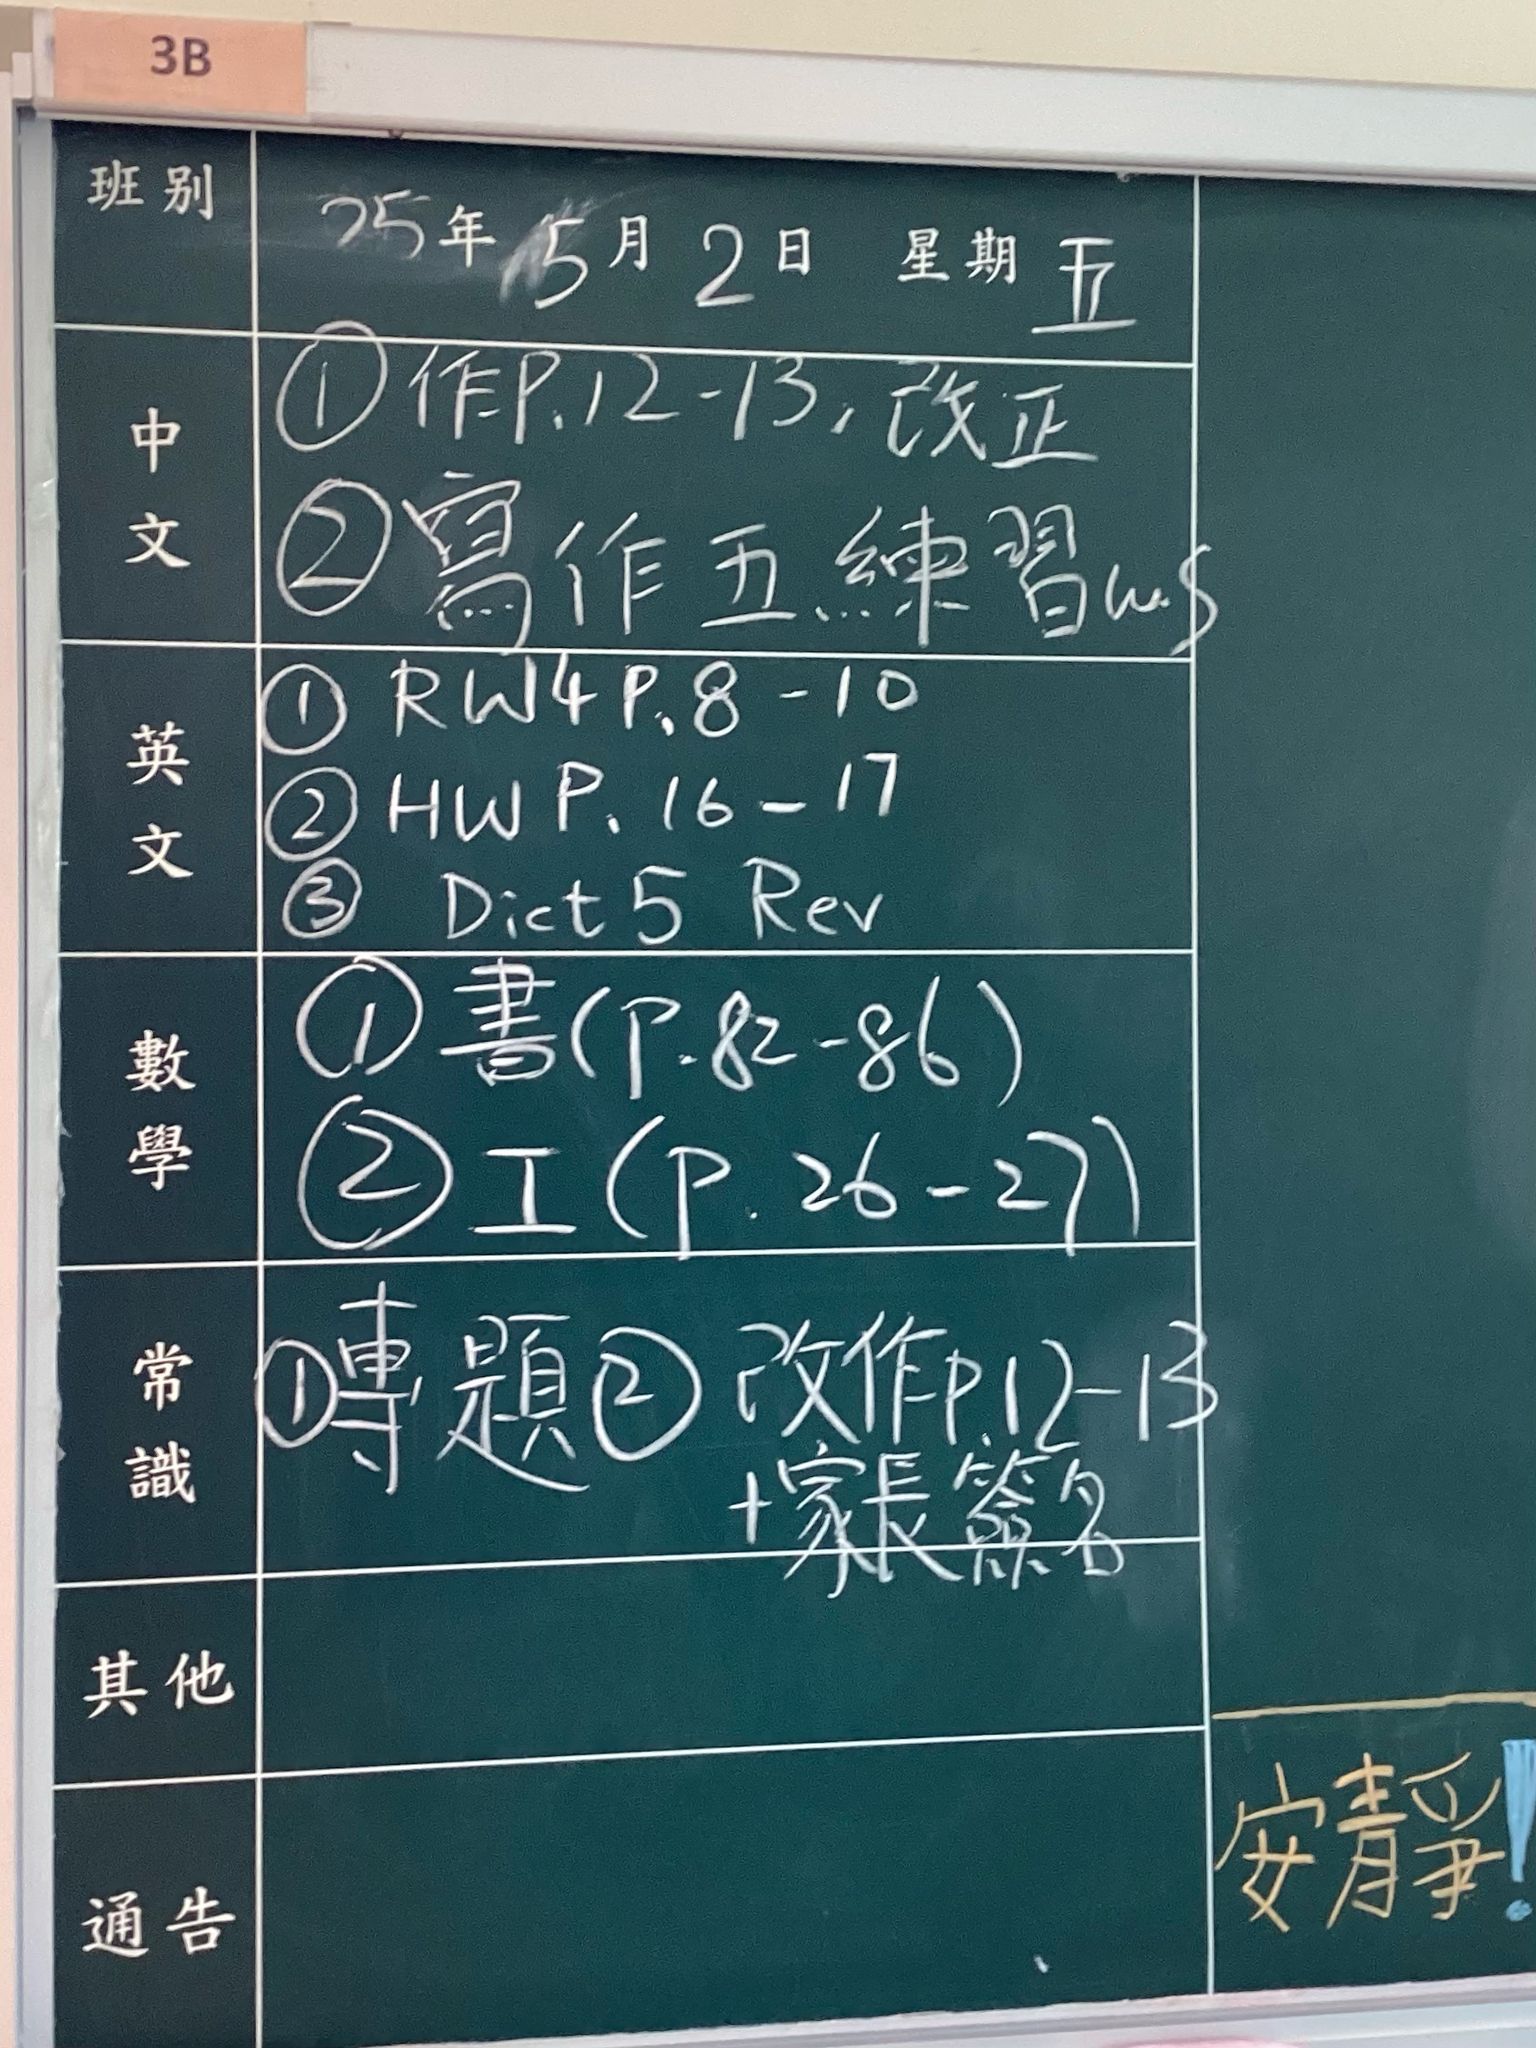 3B
班別
25年5月2日 星期五
中文
①作P.12-13,改正
②寫作五練習w.s
英文
①RW4 P.8-10
②HW P.16-17
③Dict 5 Rev
數學
①書(P.82-86)
②工(P.26-27)
常識
①專題②改作P.12-13
+家長簽名
其他
通告
安靜!